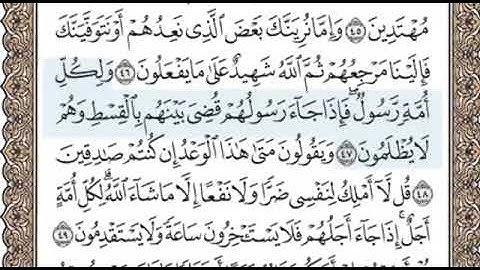 مُهْتَدِينَ ﴿٤٥﴾ وَإِمَّا نُرِيَنَّكَ بَعْضَ ٱلَّذِى نَعِدُهُمْ أَوْ نَتَوَفَّيَنَّكَ
فَإِلَيْنَا مَرْجِعُهُمْ ثُمَّ ٱللَّهُ شَهِيدٌ عَلَىٰ مَا يَفْعَلُونَ ﴿٤٦﴾ وَلِكُلِّ
أُمَّةٍ رَّسُولٌ ۖ فَإِذَا جَآءَ رَسُولُهُمْ قُضِىَ بَيْنَهُم بِٱلْقِسْطِ وَهُمْ
لَا يُظْلَمُونَ ﴿٤٧﴾ وَيَقُولُونَ مَتَىٰ هَٰذَا ٱلْوَعْدُ إِن كُنتُمْ صَٰدِقِينَ
﴿٤٨﴾ قُل لَّآ أَمْلِكُ لِنَفْسِى ضَرًّا وَلَا نَفْعًا إِلَّا مَا شَآءَ ٱللَّهُ ۗ لِكُلِّ أُمَّةٍ
أَجَلٌ ۚ إِذَا جَآءَ أَجَلُهُمْ فَلَا يَسْتَـْٔخِرُونَ سَاعَةً وَلَا يَسْتَقْدِمُونَ ﴿٤٩﴾